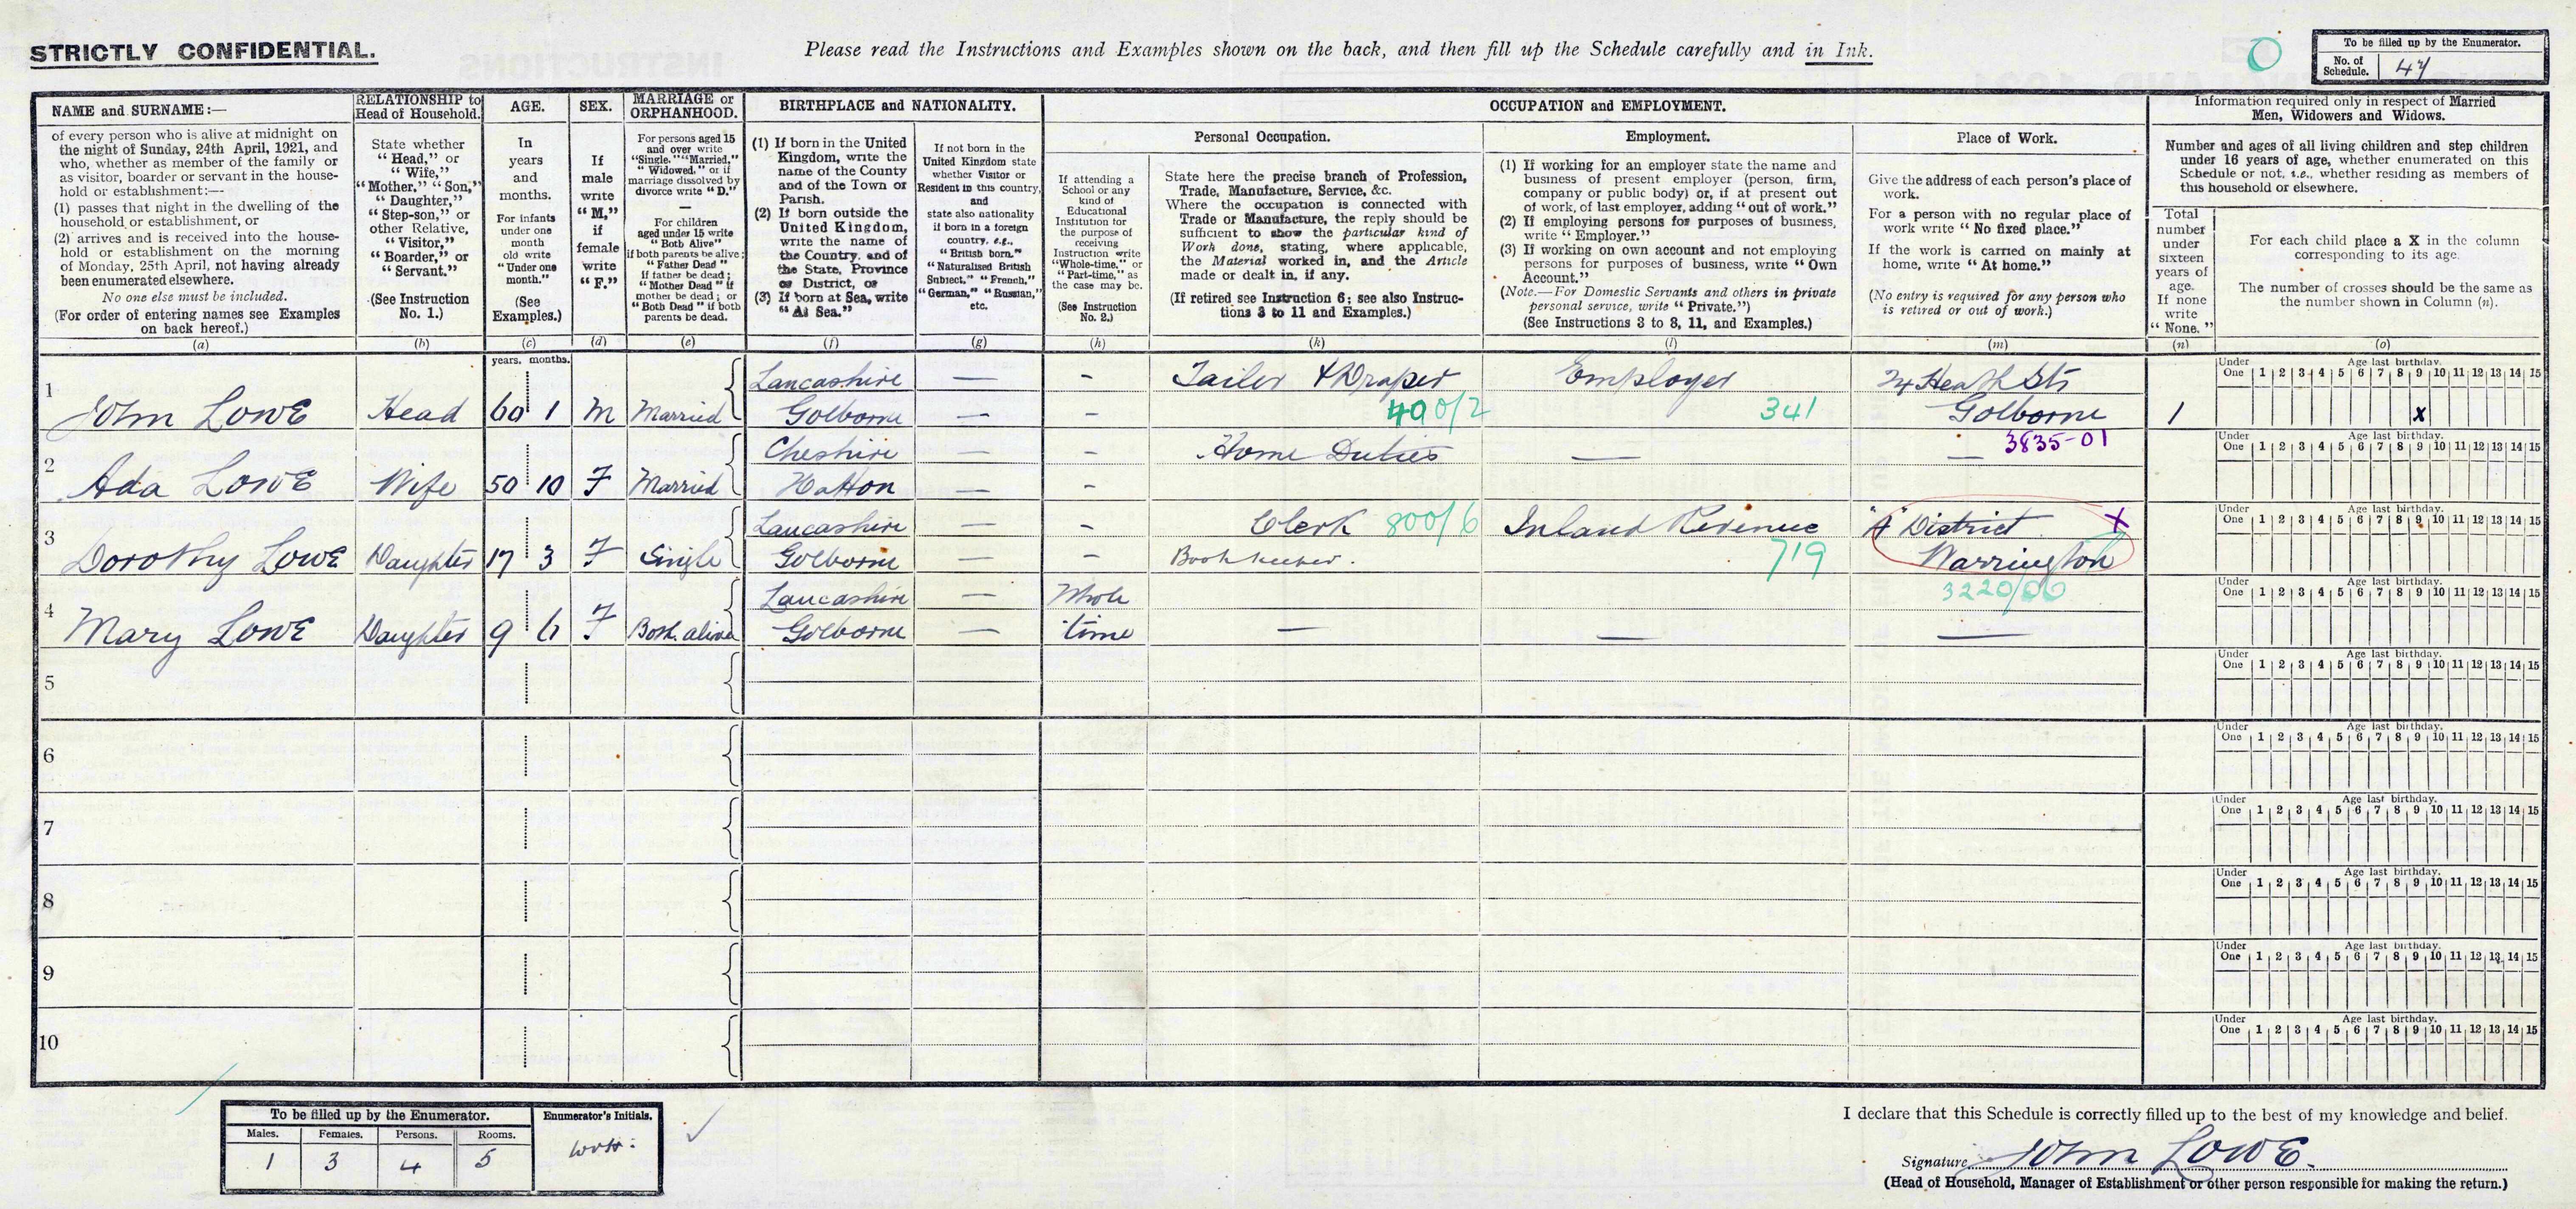 STRICTLY CONFIDENTIAL.
Please read the Instructions and Examples shown on the back, and then fill up the Schedule carefully and in Ink.
To be filled up by the Enumerator.
No. of Schedule. 47
NAME and SURNAME:—
of every person who is alive at midnight on
the night of Sunday, 24th April, 1921, and
who, whether as member of the family or
as visitor, boarder or servant in the house-
hold or establishment:—
(1) passes that night in the dwelling of the
household or establishment, or
(2) arrives and is received into the house-
hold or establishment on the morning
of Monday, 25th April, not having already
been enumerated elsewhere.
No one else must be included.
(For order of entering names see Examples
on back hereof.)
(a)
RELATIONSHIP to
Head of Household.
State whether
"Head," or
"Wife,"
"Mother," "Son,"
"Daughter,"
"Step-son," or
other Relative,
"Visitor,"
"Boarder," or
"Servant."
(See Instruction
No. 1.)
(b)
AGE.
In
years
and
months.
For infants
under one
month
old write
"Under one
month."
(See
Examples.)
(c)
SEX.
If
male
write
"M,"
if
female
write
"F."
(d)
MARRIAGE or
ORPHANHOOD.
For persons aged 15
and over write
"Single," "Married,"
"Widowed," or if
marriage dissolved by
divorce write "D."
—
For children
aged under 15 write
"Both Alive"
if both parents be alive;
"Father Dead"
if father be dead;
"Mother Dead" if
mother be dead; or
"Both Dead" if both
parents be dead.
(e)
BIRTHPLACE and NATIONALITY.
(1) If born in the United
Kingdom, write the
name of the County
and of the Town or
Parish.
(2) If born outside the
United Kingdom,
write the name of
the Country, and of
the State, Province
or District, or
(3) If born at Sea, write
"At Sea."
(f)
If not born in the
United Kingdom state
whether Visitor or
Resident in this country,
and
state also nationality
if born in a foreign
country, e.g.,
"British born,"
"Naturalised British
Subject," "French,"
"German," "Russian,"
etc.
(g)
OCCUPATION and EMPLOYMENT.
If attending a
School or any
kind of
Educational
Institution for
the purpose of
receiving
Instruction write
"Whole-time," or
"Part-time," as
the case may be.
(See Instruction
No. 2.)
(h)
Personal Occupation.
State here the precise branch of Profession,
Trade, Manufacture, Service, &c.
Where the occupation is connected with
Trade or Manufacture, the reply should be
sufficient to show the particular kind of
Work done, stating, where applicable,
the Material worked in, and the Article
made or dealt in, if any.
(If retired see Instruction 6; see also Instruc-
tions 3 to 11 and Examples.)
(k)
Employment.
(1) If working for an employer state the name and
business of present employer (person, firm,
company or public body) or, if at present out
of work, of last employer, adding "out of work."
(2) If employing persons for purposes of business,
write "Employer."
(3) If working on own account and not employing
persons for purposes of business, write "Own
Account."
(Note.—For Domestic Servants and others in private
personal service, write "Private.")
(See Instructions 3 to 8, 11, and Examples.)
(l)
Place of Work.
Give the address of each person's place of
work.
For a person with no regular place of
work write "No fixed place."
If the work is carried on mainly at
home, write "At home."
(No entry is required for any person who
is retired or out of work.)
(m)
Information required only in respect of Married
Men, Widowers and Widows.
Number and ages of all living children and step children
under 16 years of age, whether enumerated on this
Schedule or not, i.e., whether residing as members of
this household or elsewhere.
Total
number
under
sixteen
years of
age.
If none
write
"None."
(n)
For each child place a X in the column
corresponding to its age.
The number of crosses should be the same as
the number shown in Column (n).
(o)
years. months.
1 Lancashire — - Tailor & Draper Employer 24 Heath St
John LOWE Head 60 1 M Married Golborne — - 400/2 341 Golborne 1 x
2 Cheshire — - Home Duties — — 3835-01
Ada LOWE Wife 50 10 F Married Hatton — -
3 Lancashire — - Clerk 800/6 Inland Revenue "A" District X
Dorothy LOWE Daughter 17 3 F Single Golborne — - Bookkeeper. 719 Warrington
4 Lancashire — Whole 3220/06
Mary LOWE Daughter 9 6 F Both alive Golborne — time — — —
5
6
7
8
9
10
Under One Age last birthday. 1 2 3 4 5 6 7 8 9 10 11 12 13 14 15
Under One Age last birthday. 1 2 3 4 5 6 7 8 9 10 11 12 13 14 15
Under One Age last birthday. 1 2 3 4 5 6 7 8 9 10 11 12 13 14 15
Under One Age last birthday. 1 2 3 4 5 6 7 8 9 10 11 12 13 14 15
Under One Age last birthday. 1 2 3 4 5 6 7 8 9 10 11 12 13 14 15
Under One Age last birthday. 1 2 3 4 5 6 7 8 9 10 11 12 13 14 15
Under One Age last birthday. 1 2 3 4 5 6 7 8 9 10 11 12 13 14 15
Under One Age last birthday. 1 2 3 4 5 6 7 8 9 10 11 12 13 14 15
Under One Age last birthday. 1 2 3 4 5 6 7 8 9 10 11 12 13 14 15
Under One Age last birthday. 1 2 3 4 5 6 7 8 9 10 11 12 13 14 15
To be filled up by the Enumerator.
Males. Females. Persons. Rooms.
1 3 4 5
Enumerator's Initials.
I declare that this Schedule is correctly filled up to the best of my knowledge and belief.
Signature John LOWE.
(Head of Household, Manager of Establishment or other person responsible for making the return.)